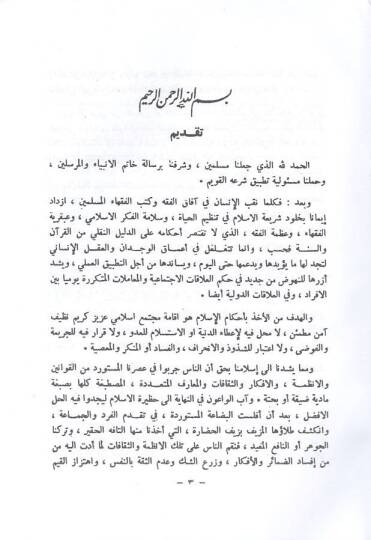 بسم الله الرحمن الرحيم
تقديم
الحمد لله الذي جعلنا مسلمين ، وشرفنا برسالة خاتم الانبياء والمرسلين ،
وحملنا مسئولية تطبيق شرعه القويم .
وبعد : فكلما نقب الإنسان في آفاق الفقه وكتب الفقهاء المسلمين ، ازداد
إيمانا بخلود شريعة الاسلام في تنظيم الحياة ، وسلامة الفكر الاسلامي ، وعبقرية
الفقهاء ، وعظمة الفقه ، الذي لا تقتصر أحكامه على الدليل النقلي من القرآن
والسنة فحسب ، وانما تتغلغل في أعماق الوجدان والعقل الإنساني
لتجد لها ما يؤيدها ويدعمها حتى اليوم ، ويساندها من أجل التطبيق العملي ، ويشد
أزرها للنهوض من جديد في حكم العلاقات الاجتماعية والمعاملات المتكررة يوميا بين
الافراد ، وفي العلاقات الدولية أيضا .
والهدف من الأخذ بأحكام الإسلام هو اقامة مجتمع اسلامي عزيز كريم نظيف
آمن مطمئن ، لا محل فيه لإعطاء الدنية او الاستسلام للعدو ، ولا قرار فيه للجريمة
والفوضى ، ولا اعتبار للشذوذ والانحراف ، والفساد أو المنكر والمعصية .
ومما يشدنا الى إسلامنا بحق أن الناس جربوا في عصرنا المستورد من القوانين
والانظمة ، والافكار والثقافات والمعارف المتعددة ، المصطبغة كلها بصبغة
مادية ضيقة أو بحتة . وآب الواعون في النهاية الى حظيرة الاسلام ليجدوا فيه الحل
الافضل ، بعد أن أفلست البضاعة المستوردة ، في تقدم الفرد والجماعة ،
وانكشف طلاؤها المزيف بزيف الحضارة ، التي أخذنا منها التافه الحقير ، وتركنا
الجوهر أو النافع المفيد ، فنقم الناس على تلك الانظمة والثقافات لما أدت اليه من
من إفساد الضمائر والأفكار ، وزرع الشك وعدم الثقة بالنفس ، واهتزاز القيم
— ٣ —